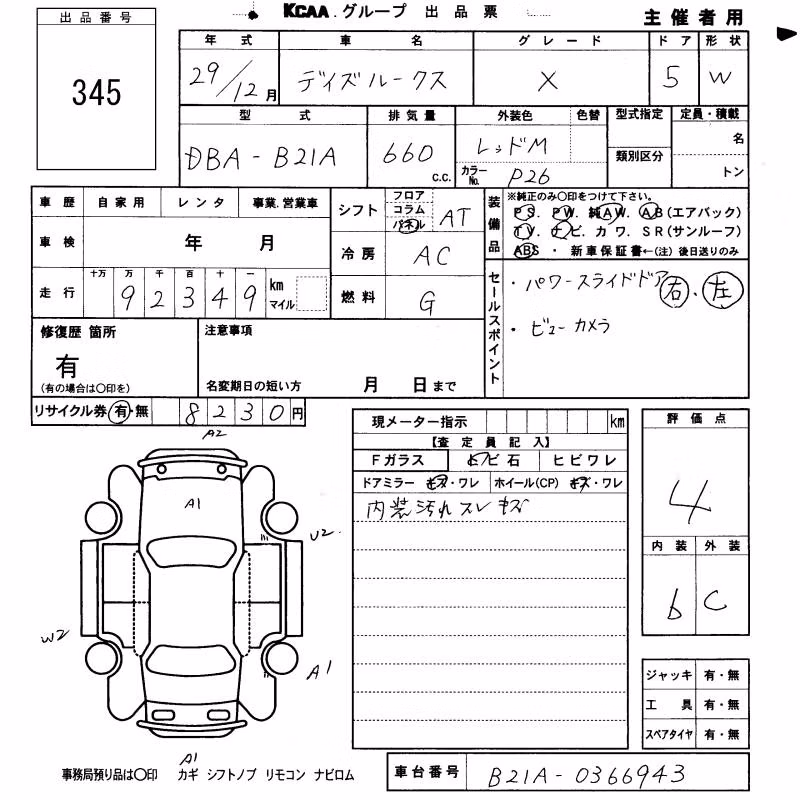 KCAA.グループ 出品票 主催者用
出品番号
345
年式 車名 グレード ドア 形状
29/12月 デイズルークス X 5 W
型式 排気量 外装色 色替 型式指定 定員・積載
DBA-B21A 660 c.c. レッドM 名
類別区分
カラーNo. P26 トン
車歴 自家用 レンタ 事業.営業車
車検 年 月
走行 十万 万 千 百 十 一
9 2 3 4 9 km マイル
シフト フロア コラム パネル AT
冷房 AC
燃料 G
装備品 ※純正のみ○印をつけて下さい。
PS. PW. 純AW. AB(エアバック)
TV. ナビ. カワ. SR(サンルーフ)
ABS ・ 新車保証書←(注)後日送りのみ
セールスポイント
・パワースライドドア 右.左
・ビューカメラ
修復歴 箇所 注意事項
有
(有の場合は○印を) 名変期日の短い方 月 日まで
リサイクル券 有・無 8230円
A2
A1
U2
W2
A1
A1
現メーター指示 km
【査定員記入】
Fガラス トビ石 ヒビワレ
ドアミラー キズ・ワレ ホイール(CP) キズ・ワレ
内装汚れスレキズ
評価点
4
内装 外装
b C
ジャッキ 有・無
工具 有・無
スペアタイヤ 有・無
事務局預り品は○印 カギ シフトノブ リモコン ナビロム
車台番号 B21A-0366943